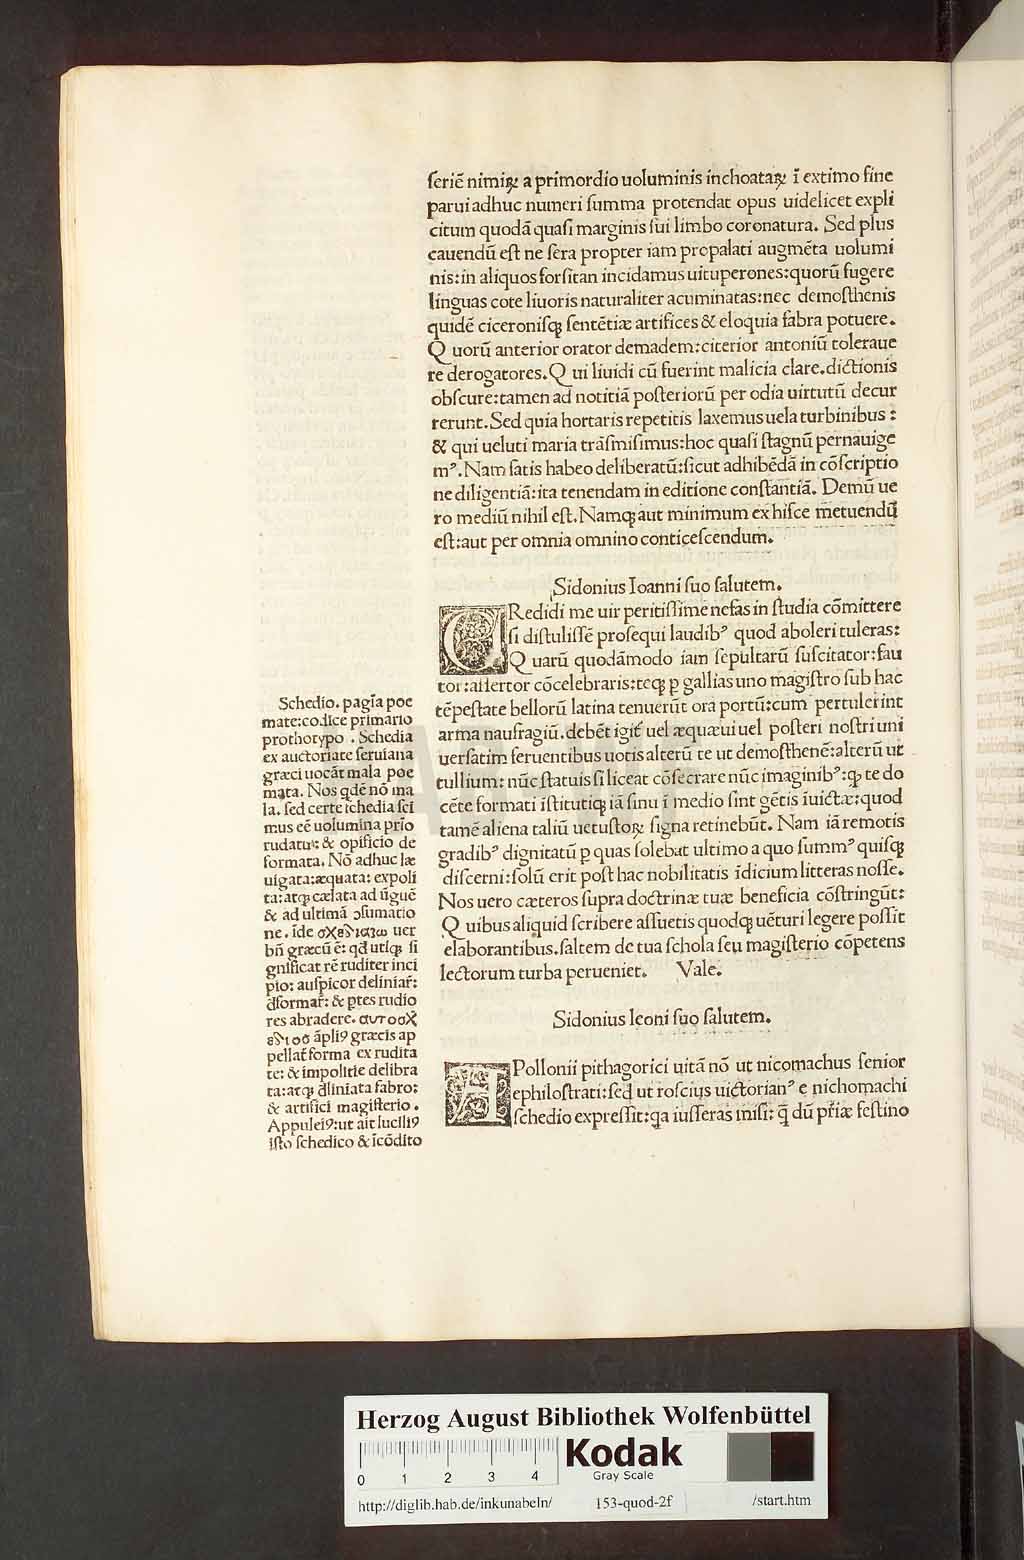 ſeriē nimiꝝ a primordio uoluminis inchoataꝝ ī extimo fine
parui adhuc numeri ſumma protendat opus uidelicet expli
citum quodā quaſi marginis ſui limbo coronatura. Sed plus
cauendū eſt ne ſera propter iam propalati augmēta uolumi
nis:in aliquos forſitan incidamus uituperones:quorū fugere
linguas cote liuoris naturaliter acuminatas:nec demoſthenis
quidē ciceroniſqꝫ ſentētiæ artifices & eloquia fabra potuere.
Quorū anterior orator demadem:citerior antoniū toleraue
re derogatores.Qui liuidi cū fuerint malicia clare.dictionis
obſcure:tamen ad notitiā poſteriorū per odia uirtutū decur
rerunt.Sed quia hortaris repetitis laxemus uela turbinibus:
& qui ueluti maria trāſmiſimus:hoc quaſi ſtagnū pernauige
mꝰ. Nam ſatis habeo deliberatū:ſicut adhibēdā in cōſcriptio
ne diligentiā:ita tenendam in editione conſtantiā. Demū ue
ro mediū nihil eſt. Namqꝫ aut minimum ex hiſce metuendū
eſt:aut per omnia omnino conticeſcendum.
Sidonius Ioanni ſuo ſalutem.
CRedidi me uir peritiſſime nefas in ſtudia cōmittere
ſi diſtuliſſē proſequi laudibꝰ quod aboleri tuleras:
Quarū quodāmodo iam ſepultarū ſuſcitator:fau
tor:aſſertor cōcelebraris:teqꝫ p gallias uno magiſtro ſub hac
tēpeſtate bellorū latina tenuerūt ora portū:cum pertulerint
arma naufragiū. debēt igit̃ uel æquæui uel poſteri noſtri uni
uerſatim feruentibus uotis alterū te ut demoſthenē:alterū ut
tullium: nūc ſtatuis ſi liceat cōſecrare nūc imaginibꝰ:qꝫ te do
cēte formati īſtitutiqꝫ iā ſinu ī medio ſint gētis īuictæ:quod
tamē aliena taliū uetuſtoꝝ ſigna retinebūt. Nam iā remotis
gradibꝰ dignitatū p quas ſolebat ultimo a quo ſummꝰ quiſqꝫ
diſcerni:ſolū erit poſt hac nobilitatis īdicium litteras noſſe.
Nos uero cæteros ſupra doctrinæ tuæ beneficia cōſtringūt:
Quibus aliquid ſcribere aſſuetis quodqꝫ uēturi legere poſſit
elaborantibus.ſaltem de tua ſchola ſeu magiſterio cōpetens
lectorum turba perueniet. Vale.
Sidonius leoni ſuo ſalutem.
APollonii pithagorici uitā nō ut nicomachus ſenior
e philoſtrati:ſed ut roſcius uictorianꝰ e nichomachi
ſchedio expreſſit:qa iuſſeras miſi: q̄ dū pr̄iæ feſtino
Schedio. pagīa poe
mate:codice primario
prothotypo . Schedia
ex auctoriate ſeruiana
græci uocāt mala poe
mata. Nos qdē nō ma
la. ſed certe ſchedia ſci
mus eē uolumina prio
rudatus: & opificio de
formata. Nō adhuc læ
uigata:æquata: expoli
ta: atqꝫ cælata ad ūguē
& ad ultimā ↄſumatio
ne. īde σχεδιαζω uer
bū græcū ē: qd utiqꝫ ſi
gnificat rē ruditer inci
pio: auſpicor deliniar̃:
d̄formar̃: & ptes rudio
res abradere. αυτοσχ
εδιος āpliꝰ græcis ap
pellat̃ forma ex rudita
te: & impolitie delibra
ta: atqꝫ d̄liniata fabro:
& artifici magiſterio.
Appuleiꝰ:ut ait luciliꝰ
iſto ſchedico & īcōdito
HAB WF
Herzog August Bibliothek Wolfenbüttel
0 1 2 3 4
Kodak
Gray Scale
http://diglib.hab.de/inkunabeln/ 153-quod-2f /start.htm